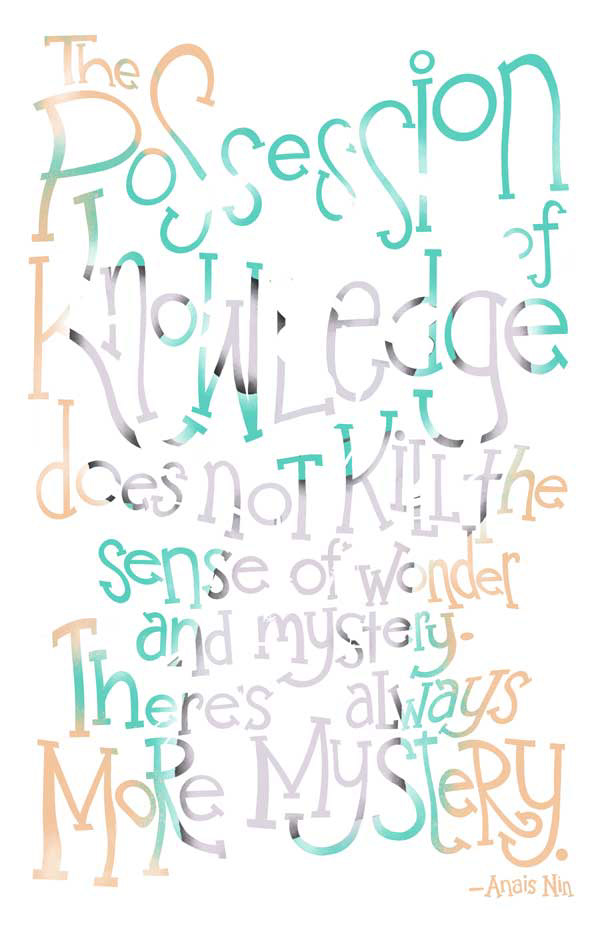 The
Possession
of
KnoWLedge
does noT KiLL the
sense of wonder
and mystery.
There's always
MoRe MySteRy.
—Anais Nin